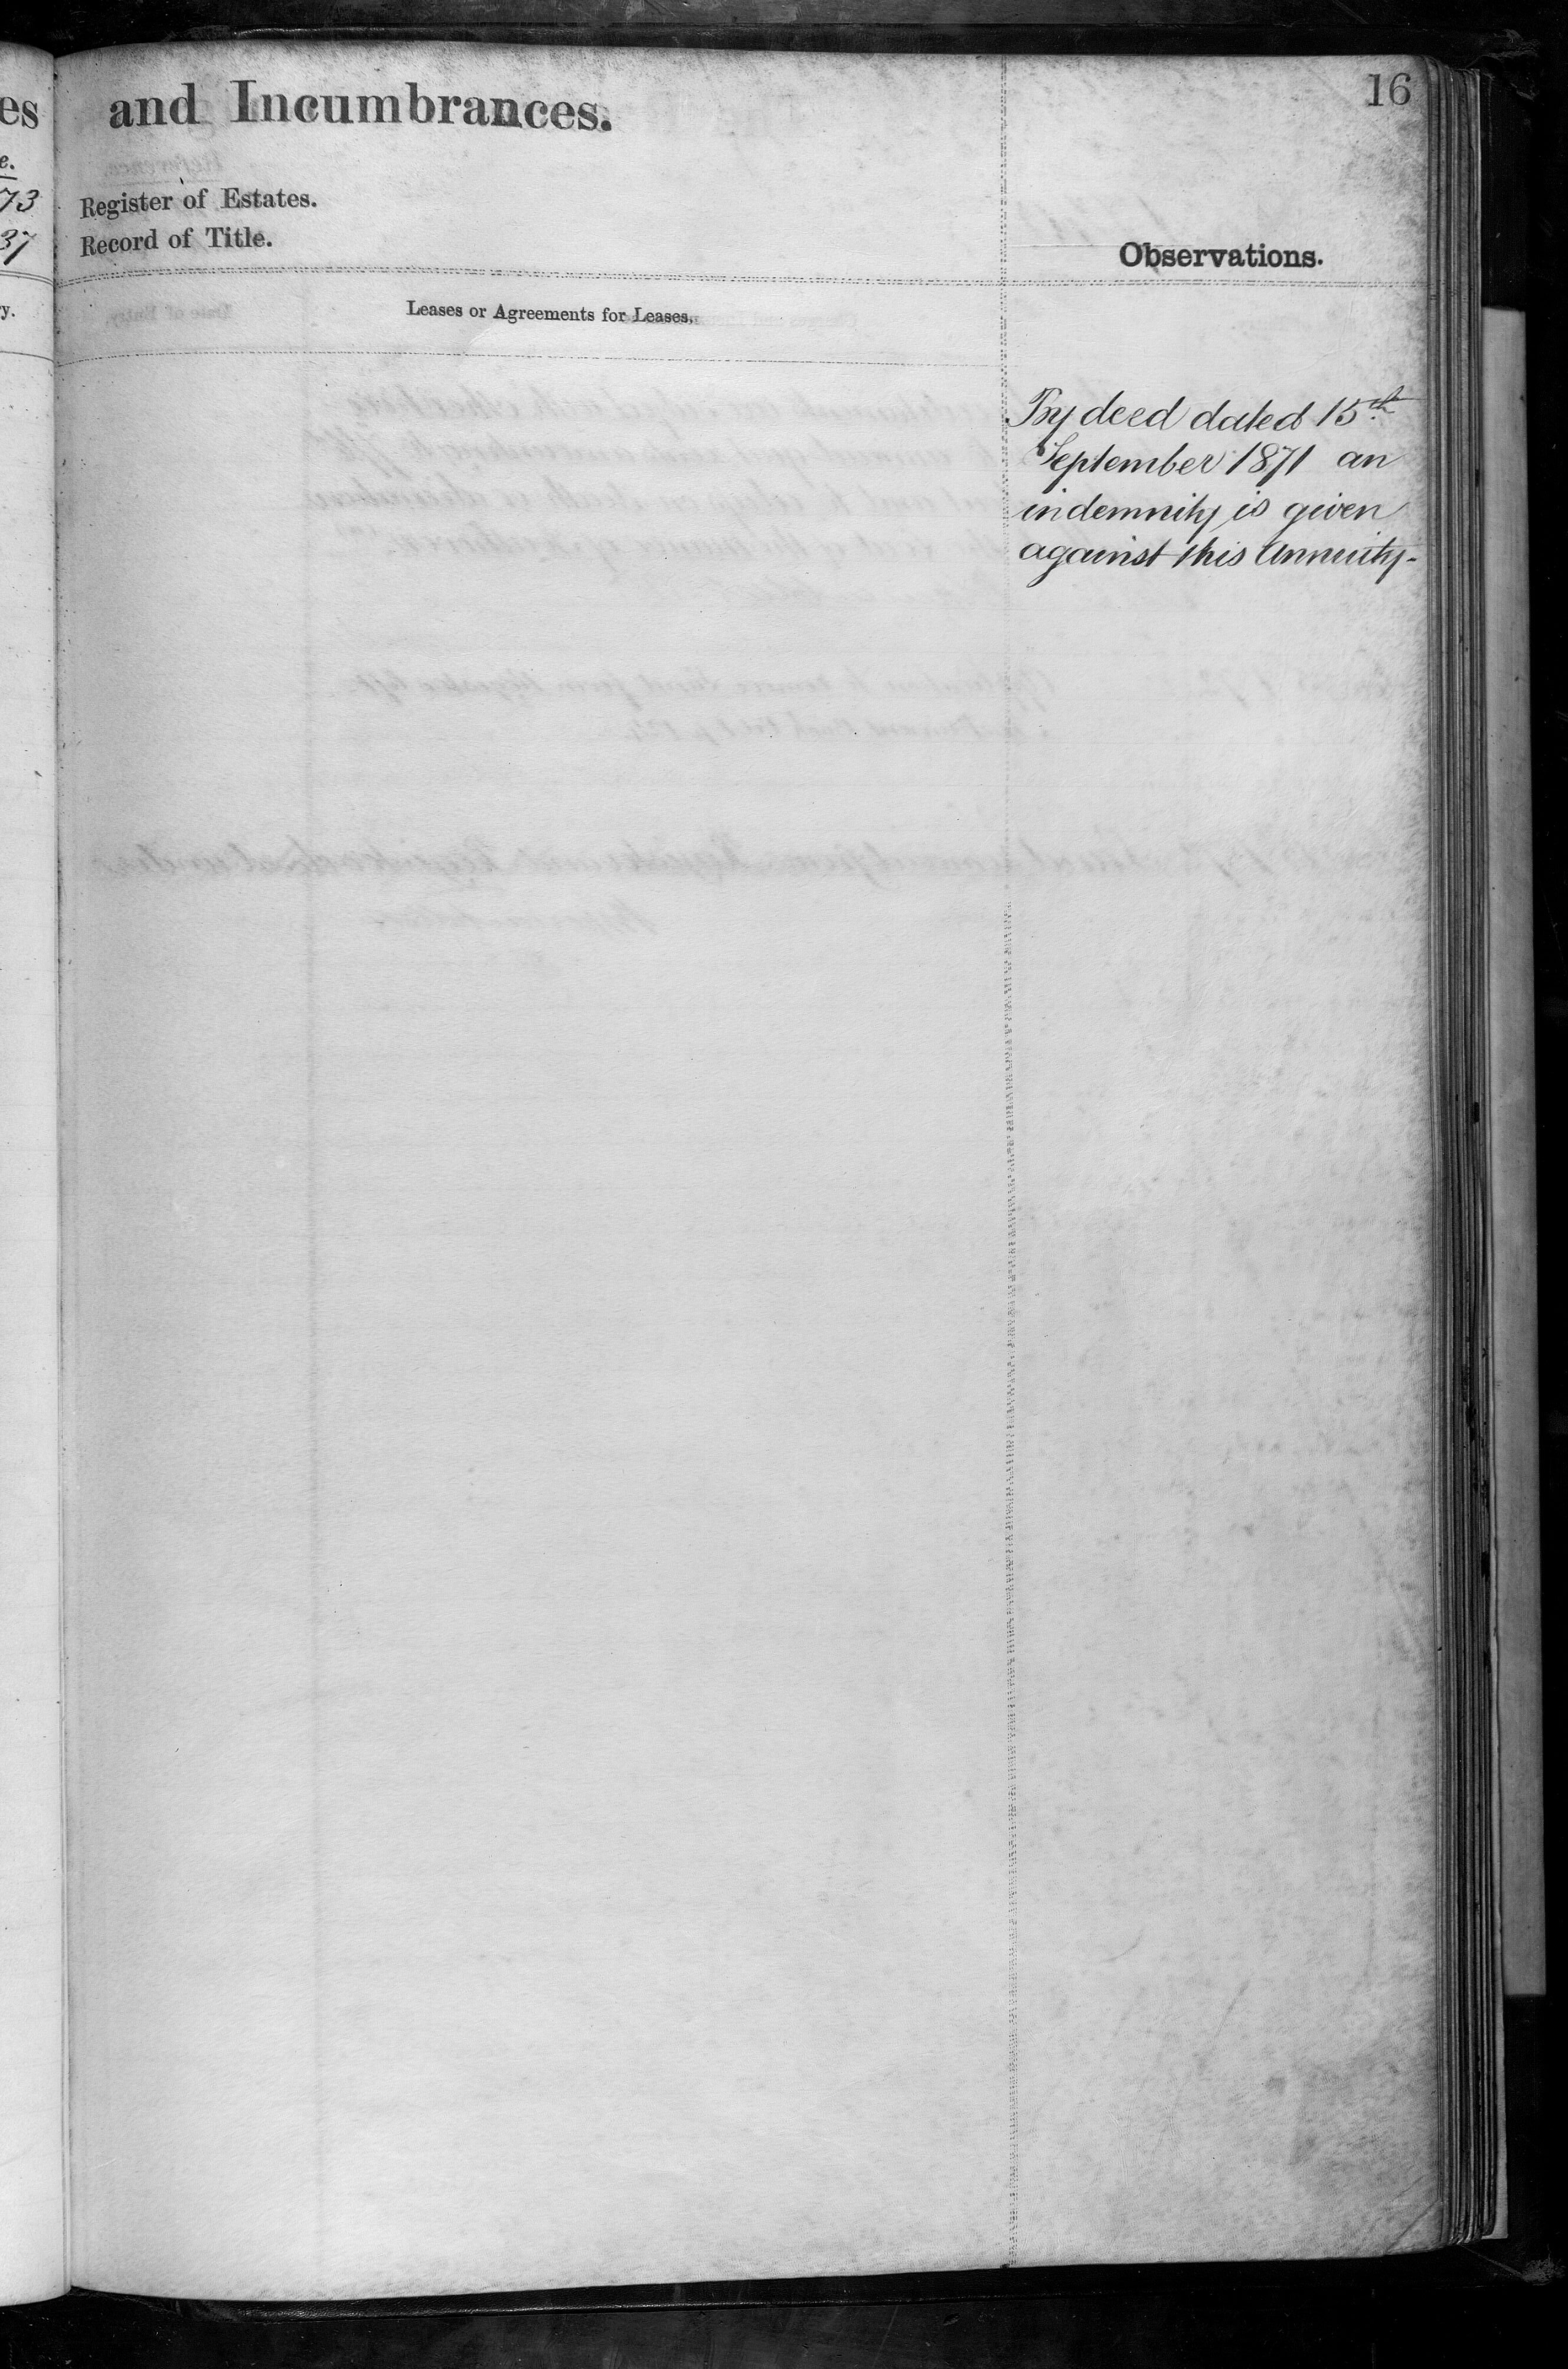 16
and Incumbrances.
Register of Estates.
Record of Title.
Observations.
Leases or Agreements for Leases.
By deed dated 15th
September 1871 an
indemnity is given
against this Annuity.
es
e.
73
37
y.